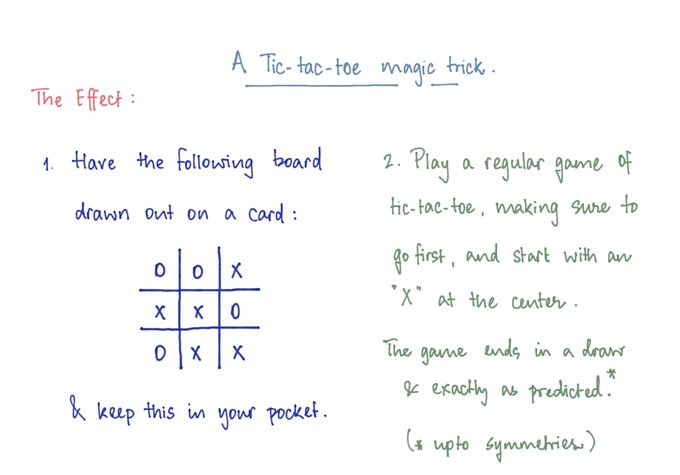 A Tic-tac-toe magic trick.
The Effect:
1. Have the following board
drawn out on a card:
O O X
X X O
O X X
& keep this in your pocket.
2. Play a regular game of
tic-tac-toe, making sure to
go first, and start with an
"X" at the center.
The game ends in a draw
& exactly as predicted.*
(* upto symmetries)